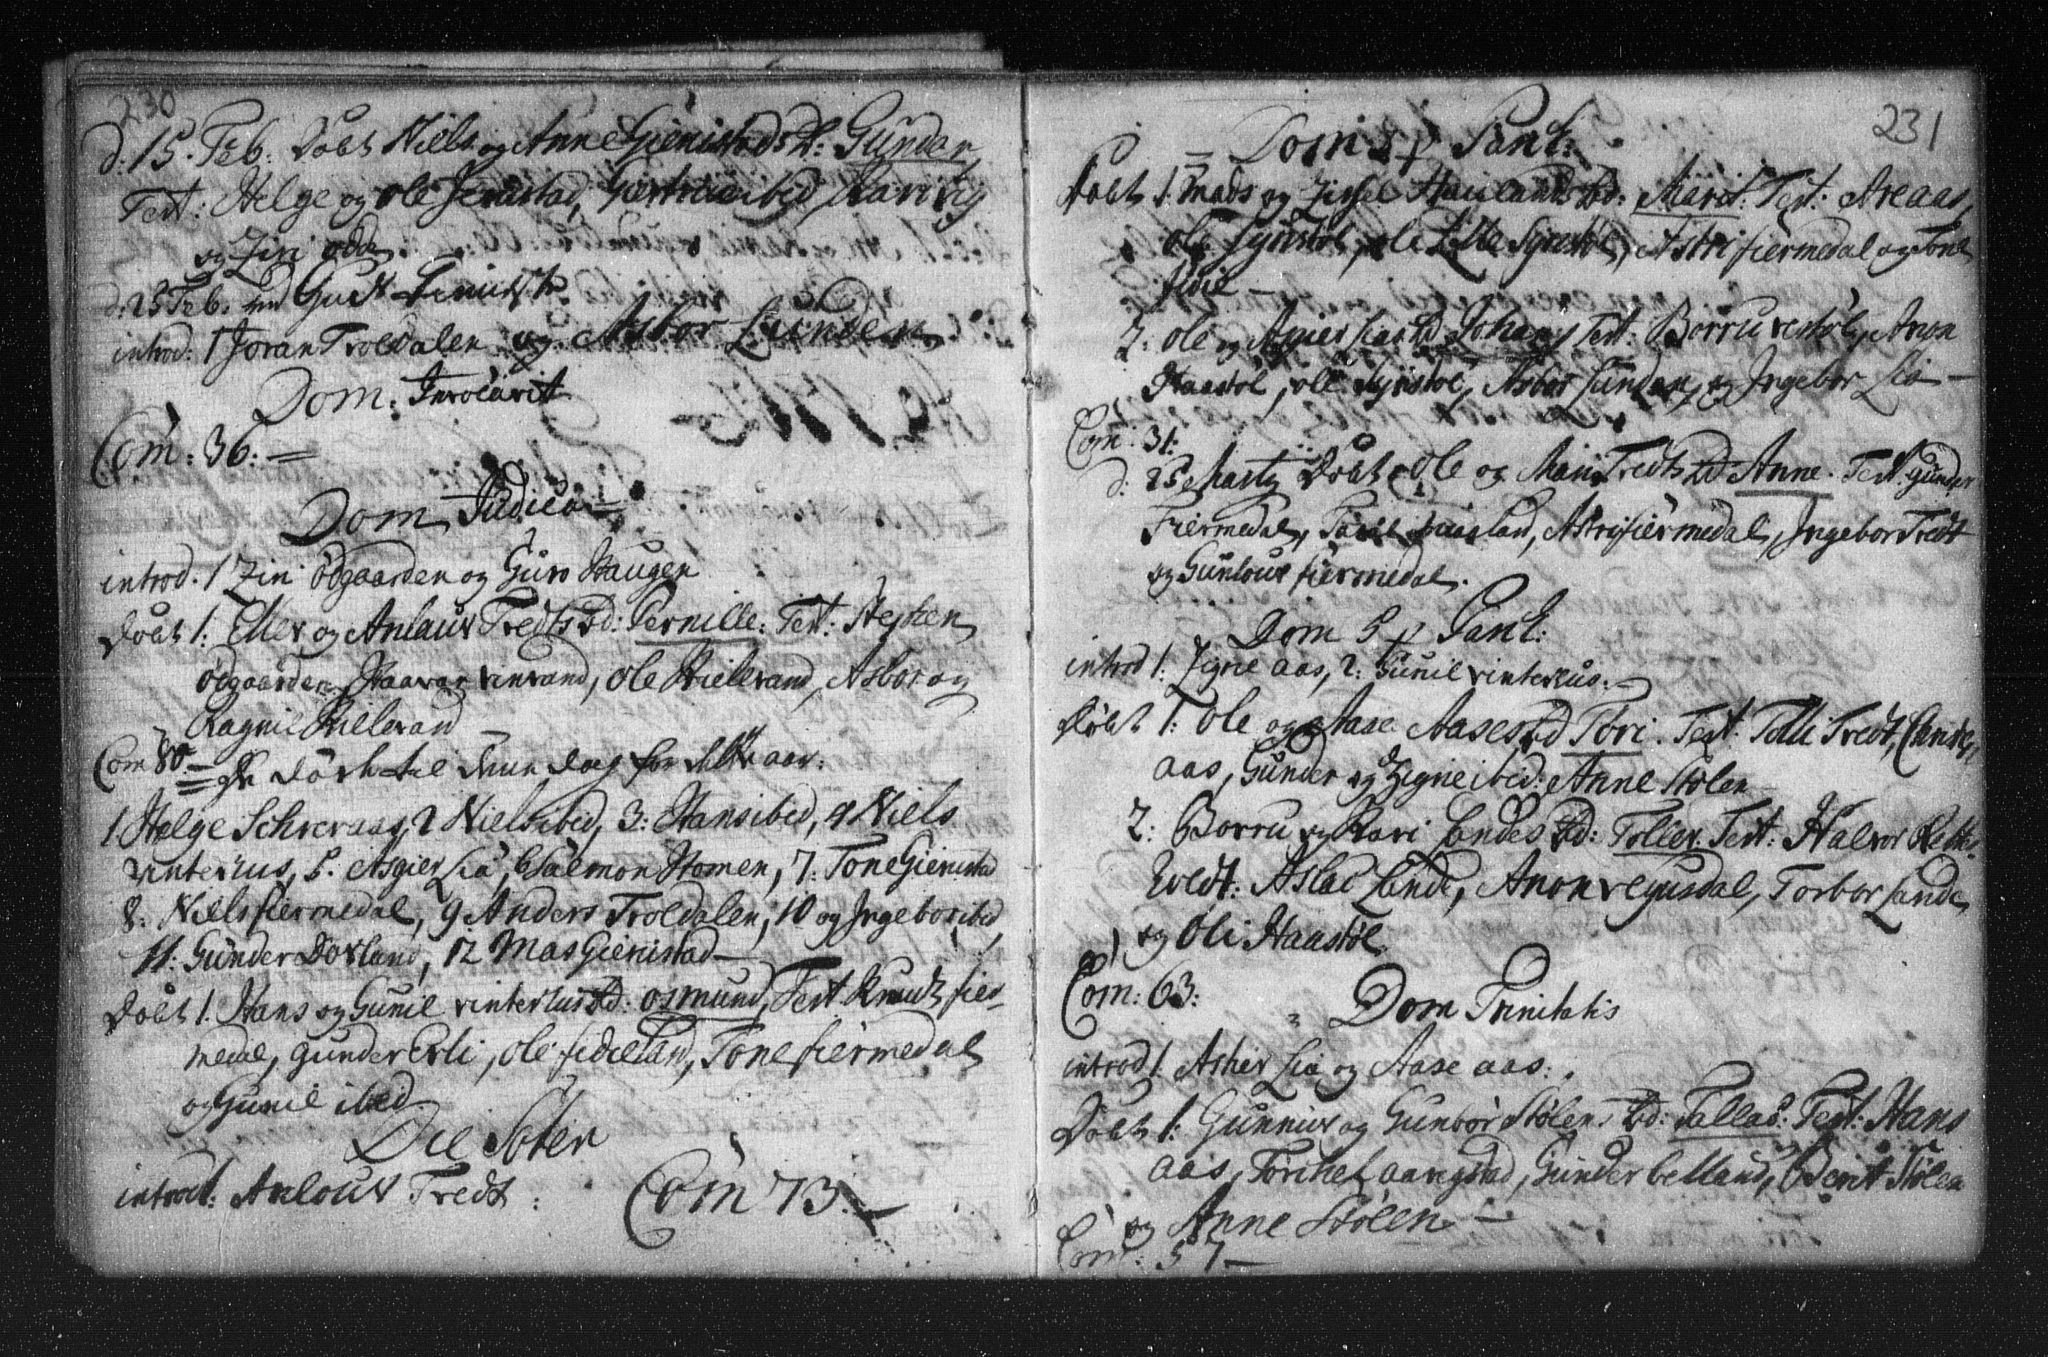 230
d: 15. Feb: Döbt Niels og Anne Gienistads B: Gunder
Test: Helge og Ole Jenistad, Giertru ibid,
og Ziri
d: 25 Feb.
introd: 1 Joran Troldalen og Asbor Lunden
Dom: Invocavit
Com: 36: —
Dom Judica —
introd. 1 Ziri Ödgaarden og Guro Haugen
Döbt 1: Eller og Anlaux Tredts bd: Pernille: Test: Stephen
Ödgaarden, Haavar vinrand, Ole Kielevand, Asbor og
Ragnil Killevand
Com 80 —
1 Helge Schreraas, 2 Niels ibid, 3: Hans ibid, 4 Niels
vinterhus, 5. Asgier Liä, 6 Salmon Homen, 7: Tone Gienistad
8: Niels fiermedal, 9 Anders Troldalen, 10 og Ingebor ibid
11: Gunder Dovland, 12 Mas Gienistad —
Döbt 1. Hans og Gunil vinterhus bd: Osmund, Test Knudt fier-
medal, gunder Erli, Ole fidieland, Tone fiermedal
og Gunil ibid.
Die
introd: Anloux Tredt: Com 73: —
231
Dom 5 p Pank:
Döbt 1. Mads og Zissel Haulands bd: Marit: Test: Are aas,
Ole Synstöl, Ole Lille Synstöl, Astri fiermedal og Tone
—
2: Ole og Asgier bd Johan, Test: Borru vestöl, Anon
Haastöl, Ole Synstöl, Asbor Lunden, og Ingebor Lia —
Com: 31:
d: 25 Marty Döbt Ole og Mari Tredts bd Anne. Test gunder
Fiermedal, Taral haugland, Astri fiermedal, Ingebor Tredt
og Gunloux fiermedal.
Dom 5 p Pank:
introd 1: Zigne aas, 2: Gunil vinterhus: —
Döbt 1: Ole og Aase Aases bd Tori. Test: Telli Tredt,
aas, Gunder og Zigne ibid: Anne Stolen
2: Borru og Kari Landes bd: Tollev. Test: Halvor
Tvedt: Aslac Lande, Anon vegusdal, Torbor Lande,
og Oli Haastöl.
Com: 63:
Dom Trinitatis
introd 1: Asgier Lia og Aase aas:
Döbt 1: Gunnius og Gunbör Stölens bd: Tallas: Test: Hans
aas, Torchel aavigstad, Gunder belland, Berit Stölen
og Anne Stölen —
Com: 57 —